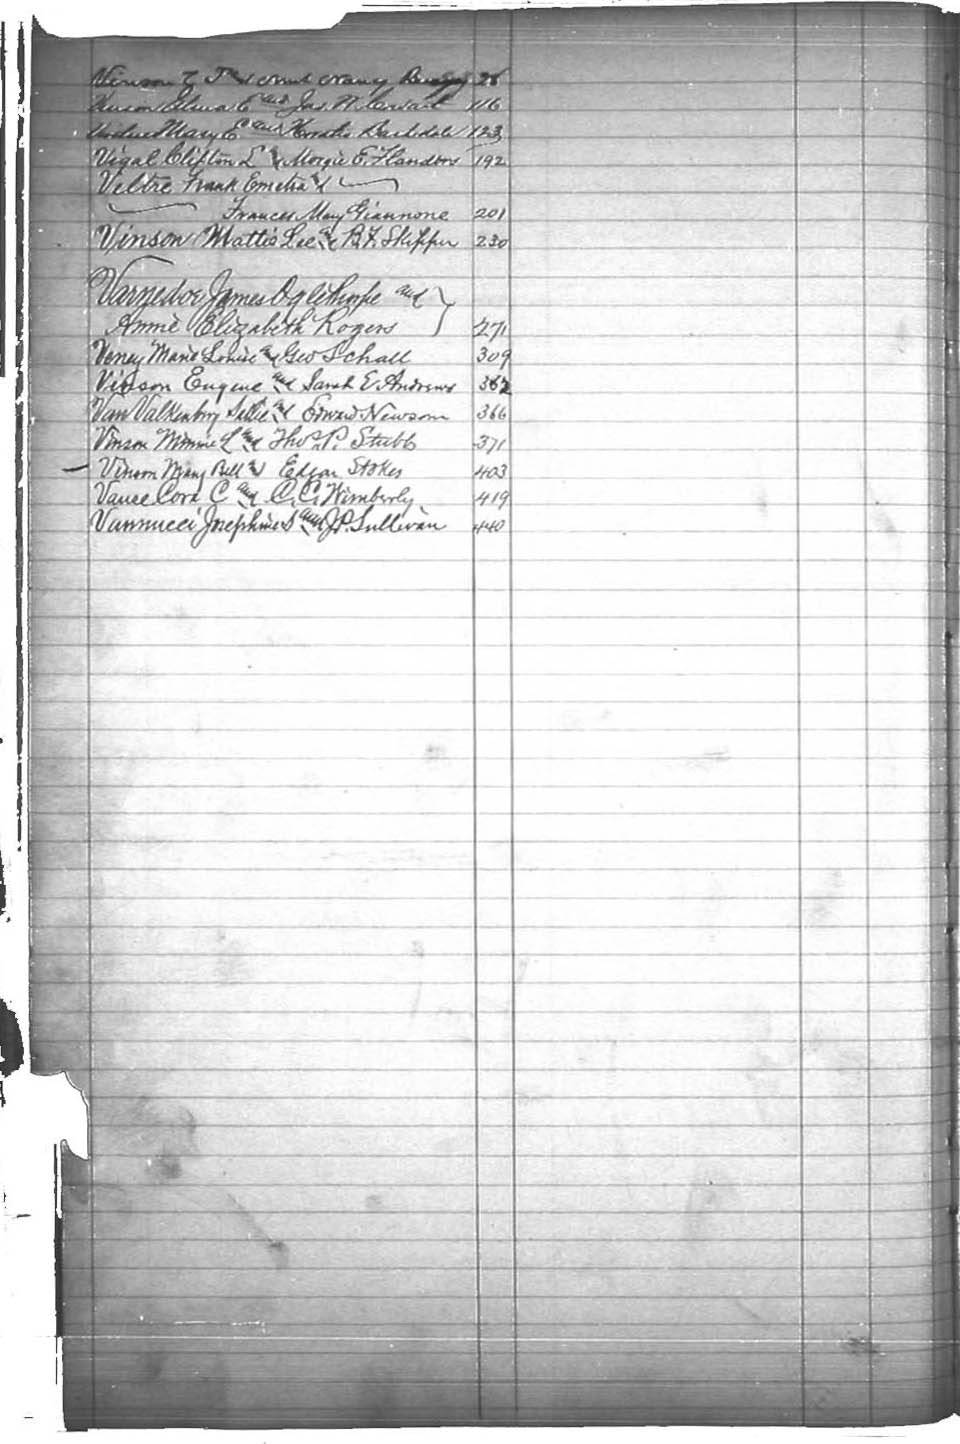 Vinson E T and Nancy 26
Vinson E and Jas N 116
Mary E and Barksdale 123
Vigal Clifton L & Morgie E. Flanders 192
Veltre Frank Emetra &
Frances May Giannone 201
Vinson Mattie Lee and B.F. Skipper 230
Varnedoe James Oglethorpe and
Annie Elizabeth Rogers 271
Veney Marie Louise and Geo Schall 309
Vinson Eugene and Sarah E. Andrews 362
Van Valkenburg Sallie and Edward Newsom 366
Vinson Minnie L and Thos. P. Stubb 371
Vinson Mary Bell & Edgar Stokes 403
Vance Cora C and C. C. Wimberly 419
Vannucci Josephine S and J.P. Sullivan 440